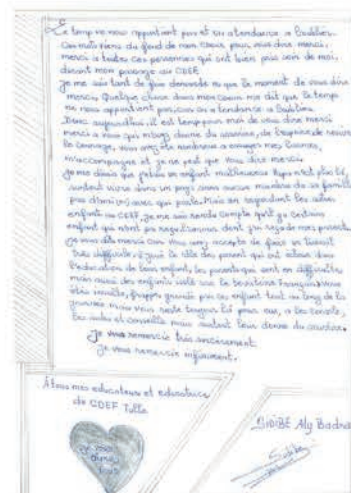 Le temp ne nous appartient pas et on a tendance a l'oublier.
Ces mots viens du fond de mon coeur pour vous dire merci,
merci a toutes ces personnes qui ont bien pris soin de moi,
durant mon passage au CDEF.
Je me suis tant de fois demandé si que le moment de vous dire
merci. Quelque chose dans mon coeur me dit que le temp
ne nous appartient pas, car on a tendance a l'oublier.
Donc aujourd'hui, il est temp pour moi de vous dire merci
merci a vous qui m'avez donné du sourire, de l'espoir de
le courage, vous avez été nombreux a essuyer mes larmes,
m'accompagné et je ne peut que vous dire merci.
Je me disais que j'étais un enfant malheureux
surtout vivre dans un pays sans aucun membre de sa famille
pas d'ami(e) avec qui parler. Mais en regardant les autres
enfant au CDEF, je me suis rendu compte qu'il ya certains
enfant qui n'ont pas
Je vous dis merci car vous avez accepté de faire un travail
très difficile, celui le rôle des parent qui ont échoué dans
l'education de leurs enfant, les parents qui sont en difficultés
mais aussi des enfants isolé sur le territoire français. Vous
êtes insulté, frappé par ces enfant tout au long de la
journée mais vous resté toujours là pour eux, a les écouté,
les aidés et conseillé mais surtout leur donné du sourire.
Je vous remercie très sincèrement.
Je vous remercie infiniment.
À tous mes educateurs et educatrice
de CDEF Tulle
Je vous aimes tous
SIDIBÉ Aly Badra
Sidibé